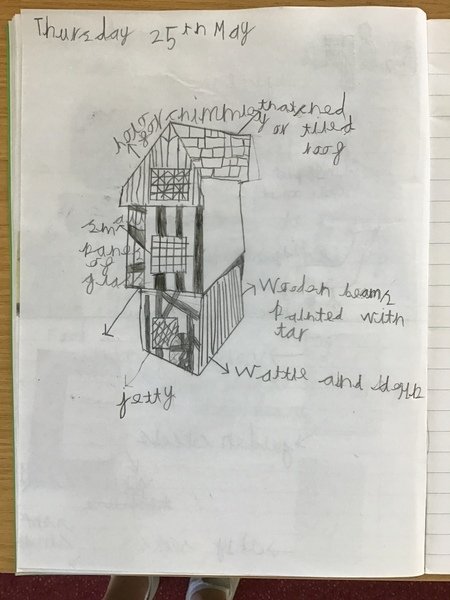 Thursday 25th May
hole for chimney
thatched
or tiled
roof
sma
panes
of
glas
Wooden beams
painted with
tar
Wattle and
jetty